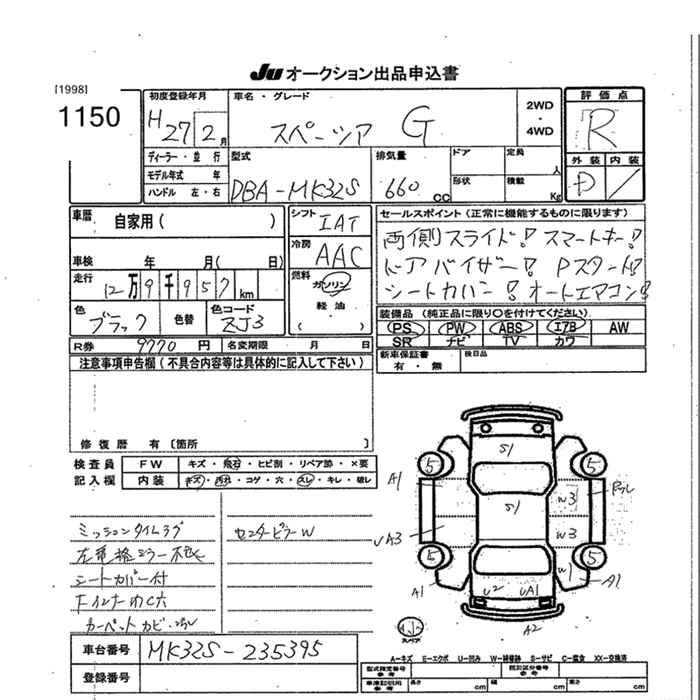 Ju オークション出品申込書
[1998]
1150
初度登録年月
H27 2月
車名・グレード
スペーシア G
2WD
・
4WD
評価点
R
ディーラー・並行
モデル年式 年
ハンドル 左・右
型式
DBA-MK32S
排気量
660 CC
ドア
定員
人
形状
積載
Kg
外装 内装
D /
車歴
自家用( )
シフト
IAT
冷房
AAC
セールスポイント(正常に機能するものに限ります)
両側スライド! スマートキー!
ドアバイザー! Pスタート!
シートカバー! オートエアコン!
車検 年 月( 日)
走行
12万9千957km
燃料
ガソリン
軽油
( )
色
ブラック
色替
色コード
ZJ3
装備品(純正品に限り○を付けてください)
PS PW ABS エアB AW
SR ナビ TV カワ
R券 9770円
名変期限 月 日
新車保証書
有・無
後日品
注意事項申告欄(不具合内容等は具体的に記載して下さい)
修復歴 有〔箇所 〕
検査員
記入欄
FW キズ・飛石・ヒビ割・リペア跡・×要
内装 キズ・汚れ・コゲ・穴・スレ・キレ・破レ
ミッションタイムラグ
シートカバー付
カーペットカビ
センターピラーW
S1
5 5
A1
S1
W3
UA3
W3
5 5
W1
A1
A1
U2 UA1
A2
スペア
車台番号
MK32S-235395
登録番号
A-キズ E-エクボ U-凹み W-補修跡 S-サビ C-腐食 XX-交換済
型式指定番号
参考
類別区分番号
参考
車庫証明用
参考
長さ cm
幅 cm
高さ cm